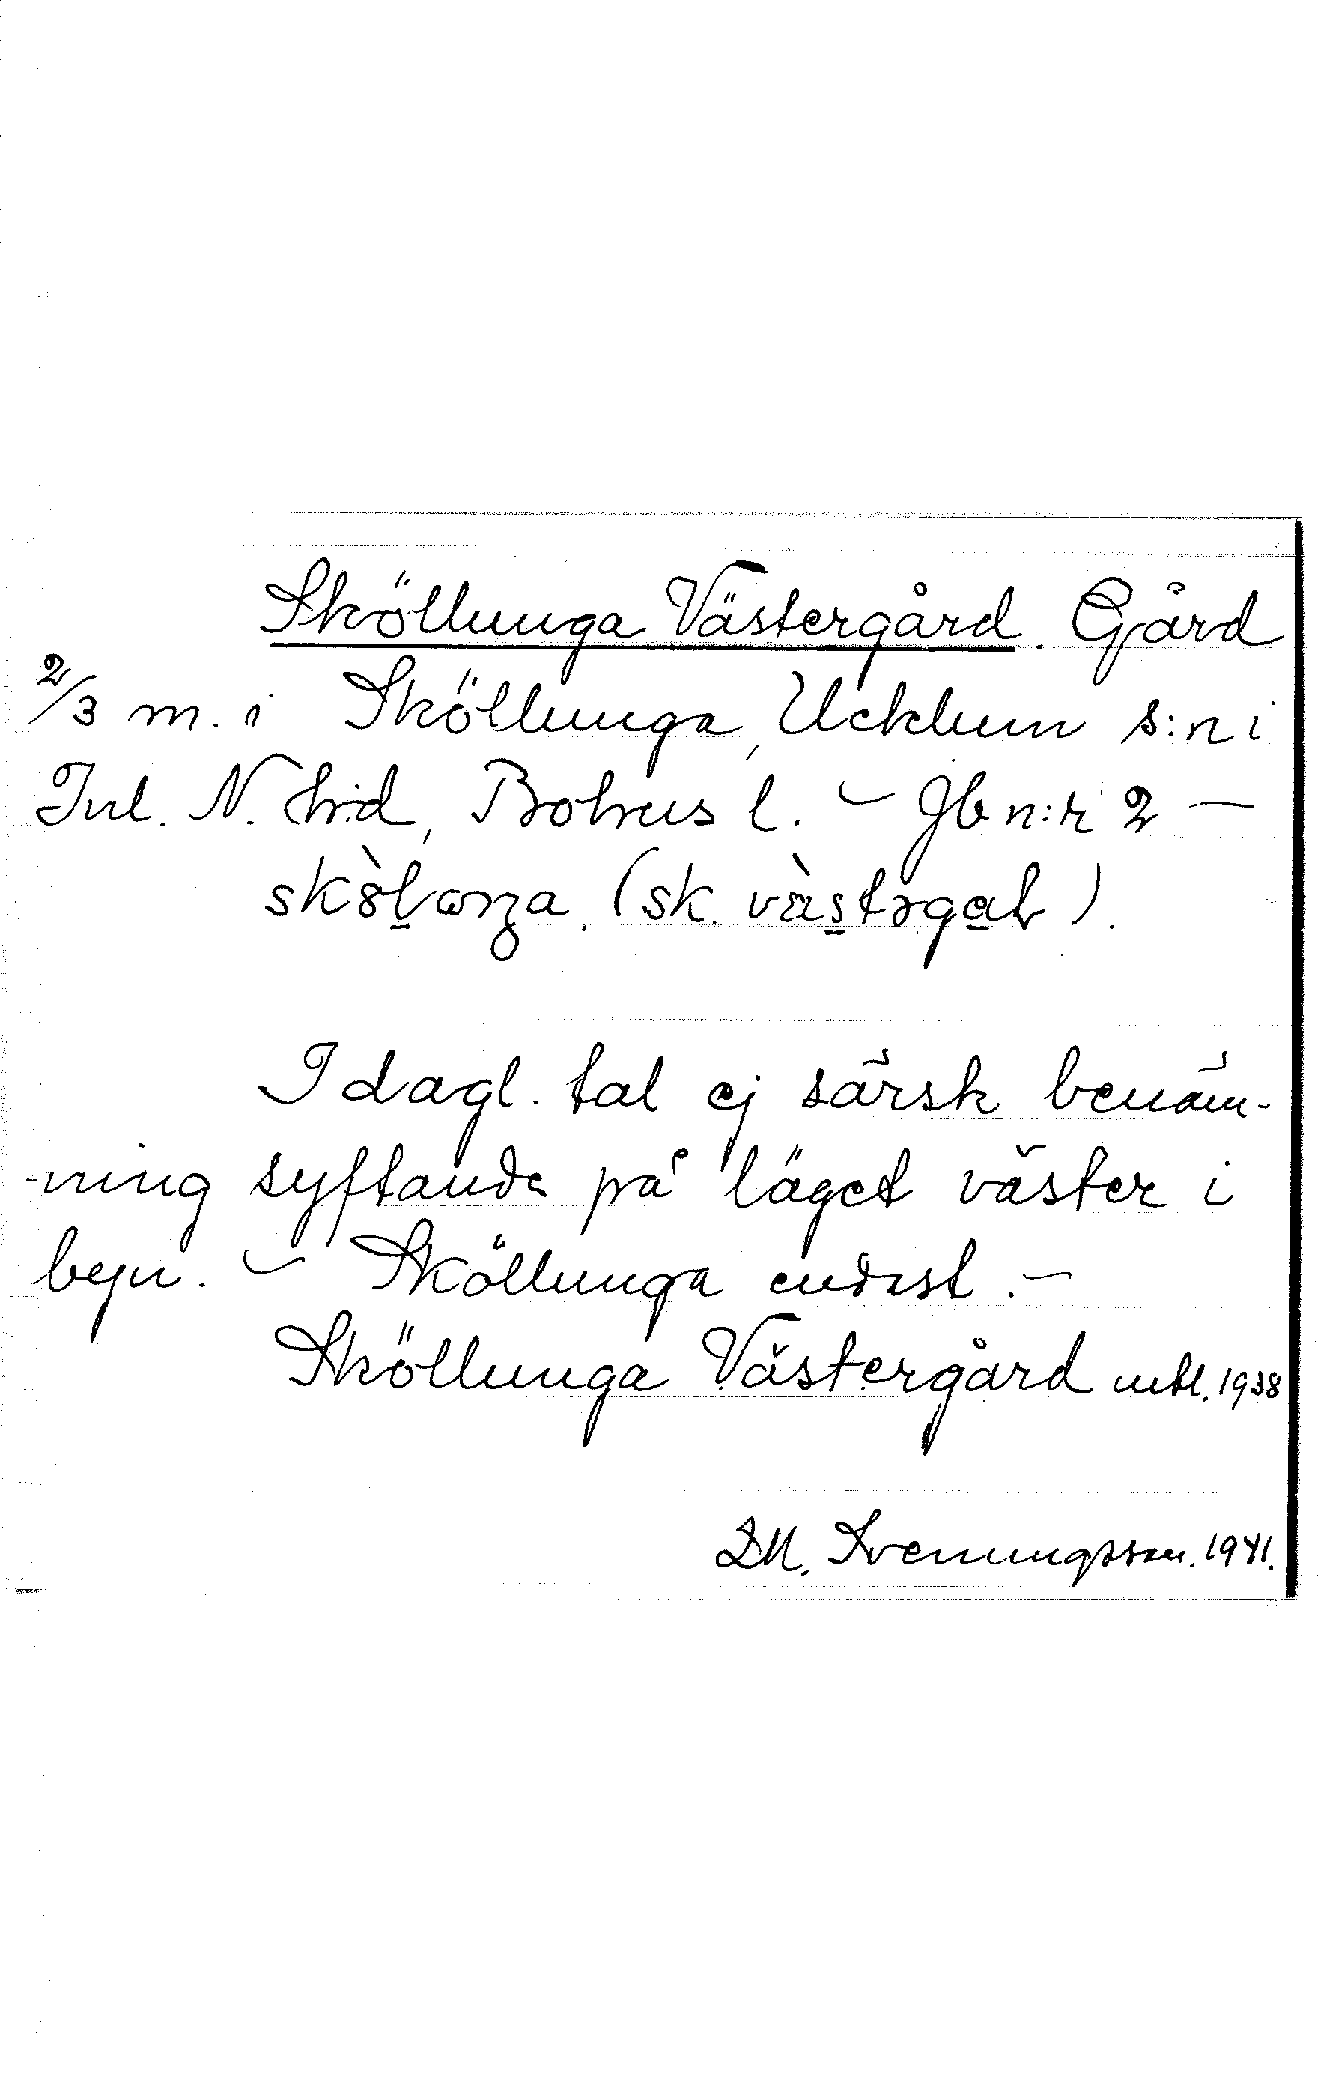 Sköllunga Västergård. Gård
2/3 m. i Sköllunga, Ucklum s:n i
Inl. N. hrd, Bohus l. – Jb n:r 2 –
(sk.
I dagl. tal ej särsk benäm-
-ning syftande på läget väster i
byn. – Sköllunga endast. –
Sköllunga Västergård mtl. 1938
D.M. Svenungsson. 1941.